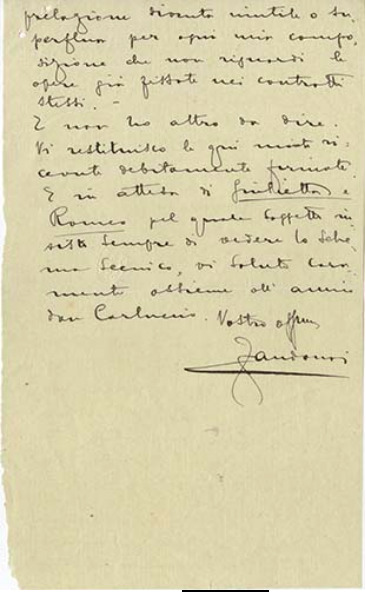 prelazione diventa inutile o su-
perflua per ogni mia compo-
sizione che non riguardi le
opere già fissate nei contratti
stessi. -
E non ho altro da dire.
Vi restituisco le qui unite ri-
cevute debitamente firmate.
E in attesa di Giulietta e
Romeo pel quale soggetto in-
sisto sempre di vedere lo sche-
ma scenico, vi saluto cara-
mente assieme all'amico
don Carluccio. Vostro affmo
Zandonai